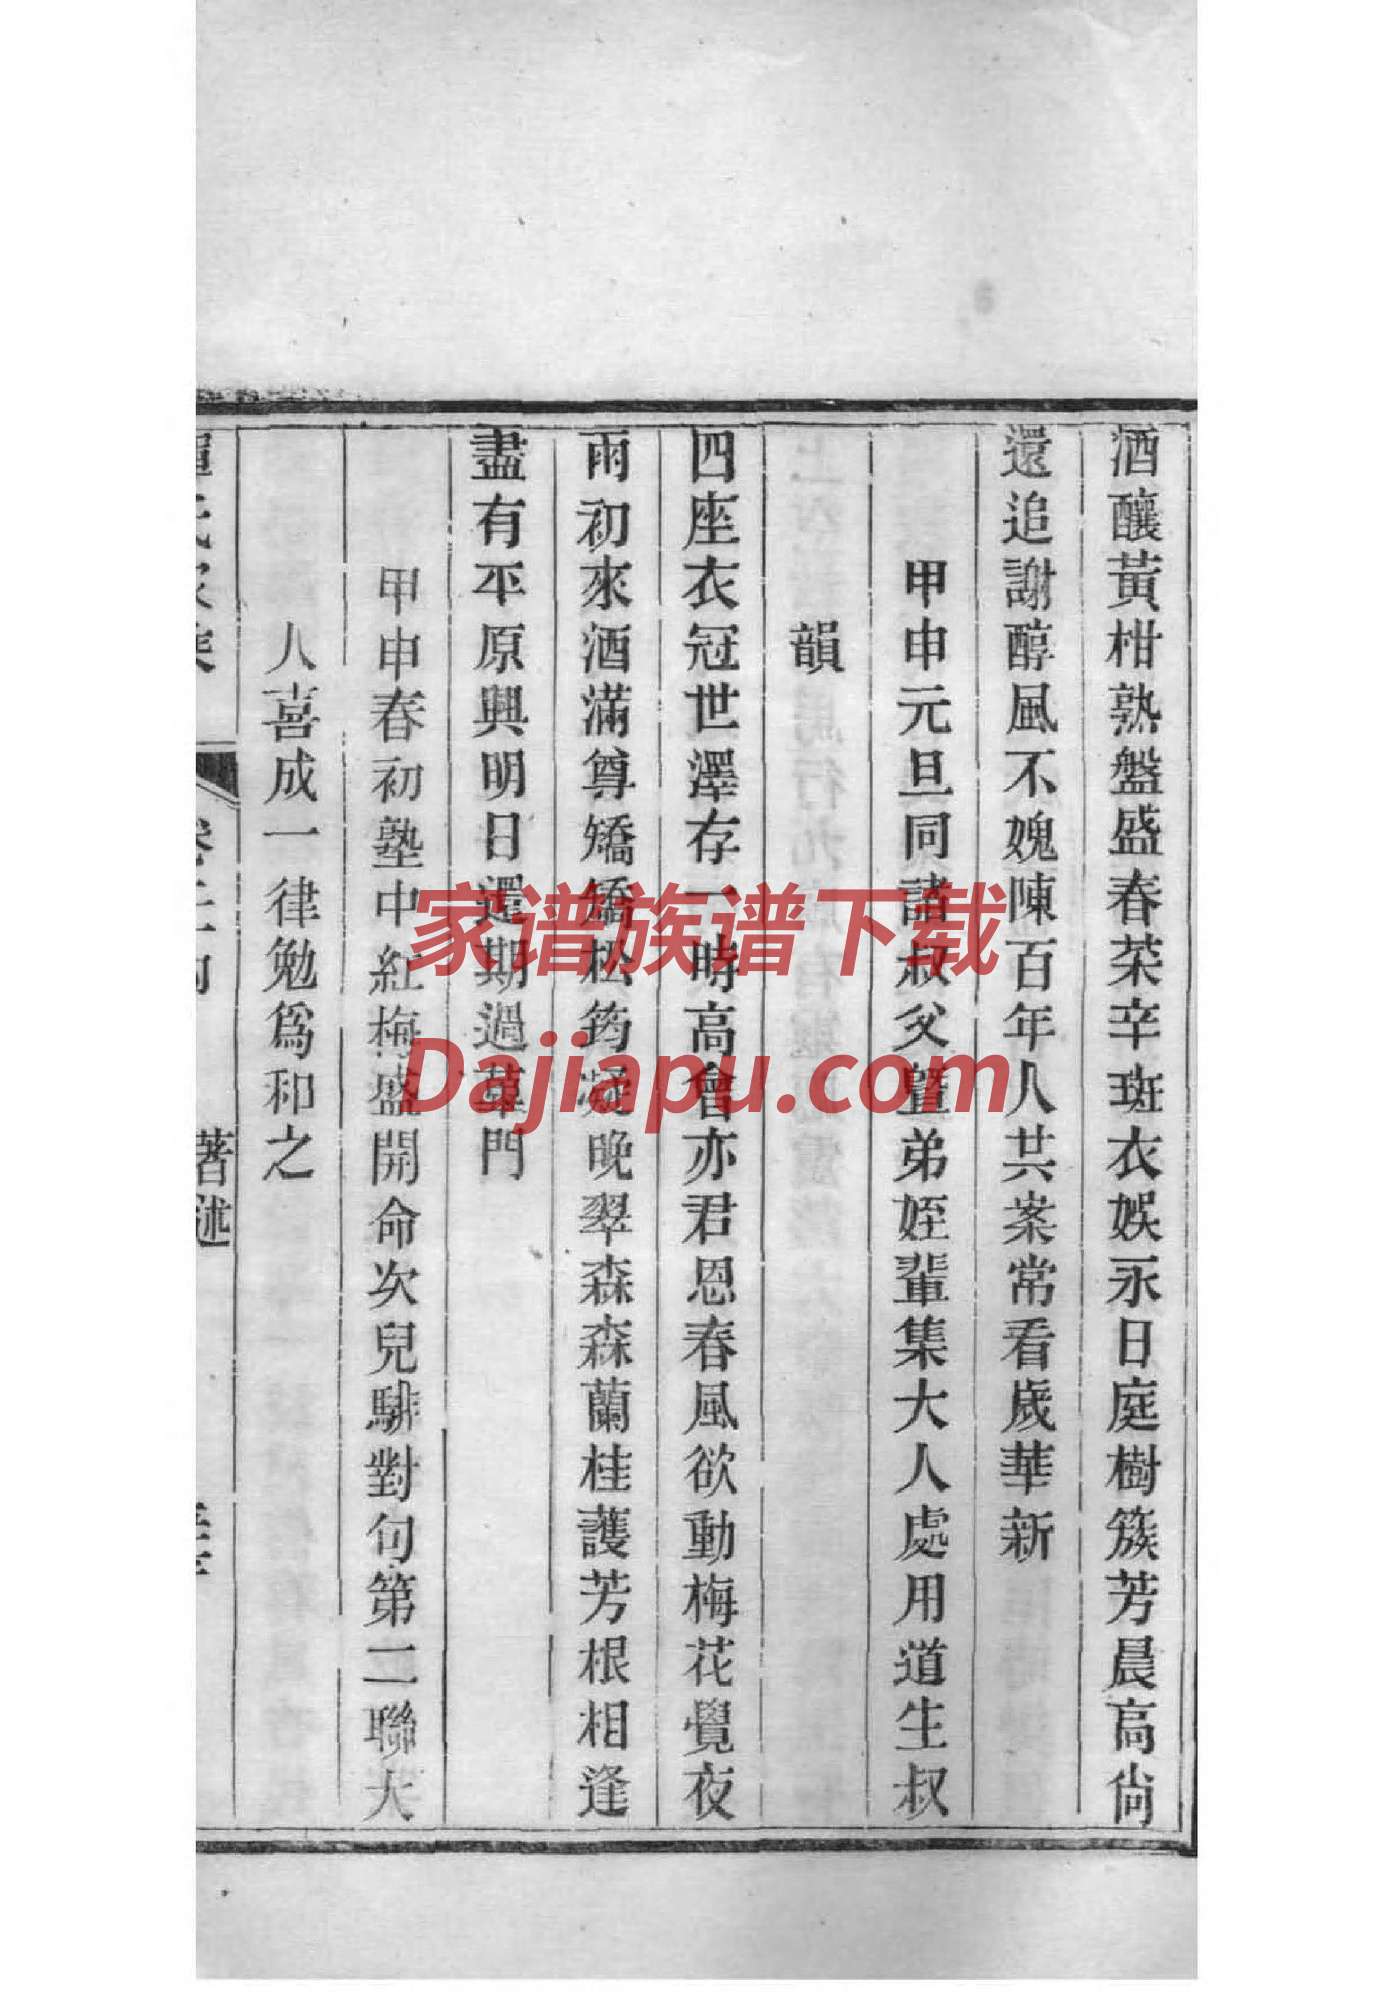 酒釀黃柑熟盤盛春菜辛斑衣娛永日庭樹簇芳晨高尙
還追謝醇風不媿陳百年人共案常看歲華新
甲申元旦同諸叔父暨弟姪輩集大人處用道生叔
韻
四座衣冠世澤存一時高會亦君恩春風欲動梅花覺夜
雨初來酒滿尊矯矯松筠凝晚翠森森蘭桂護芳根相逢
盡有平原興明日還期過蓽門
甲申春初塾中紅梅盛開命次兒騑對句第二聯大
人喜成一律勉爲和之
著述
家谱族谱下载
Dajiapu.com